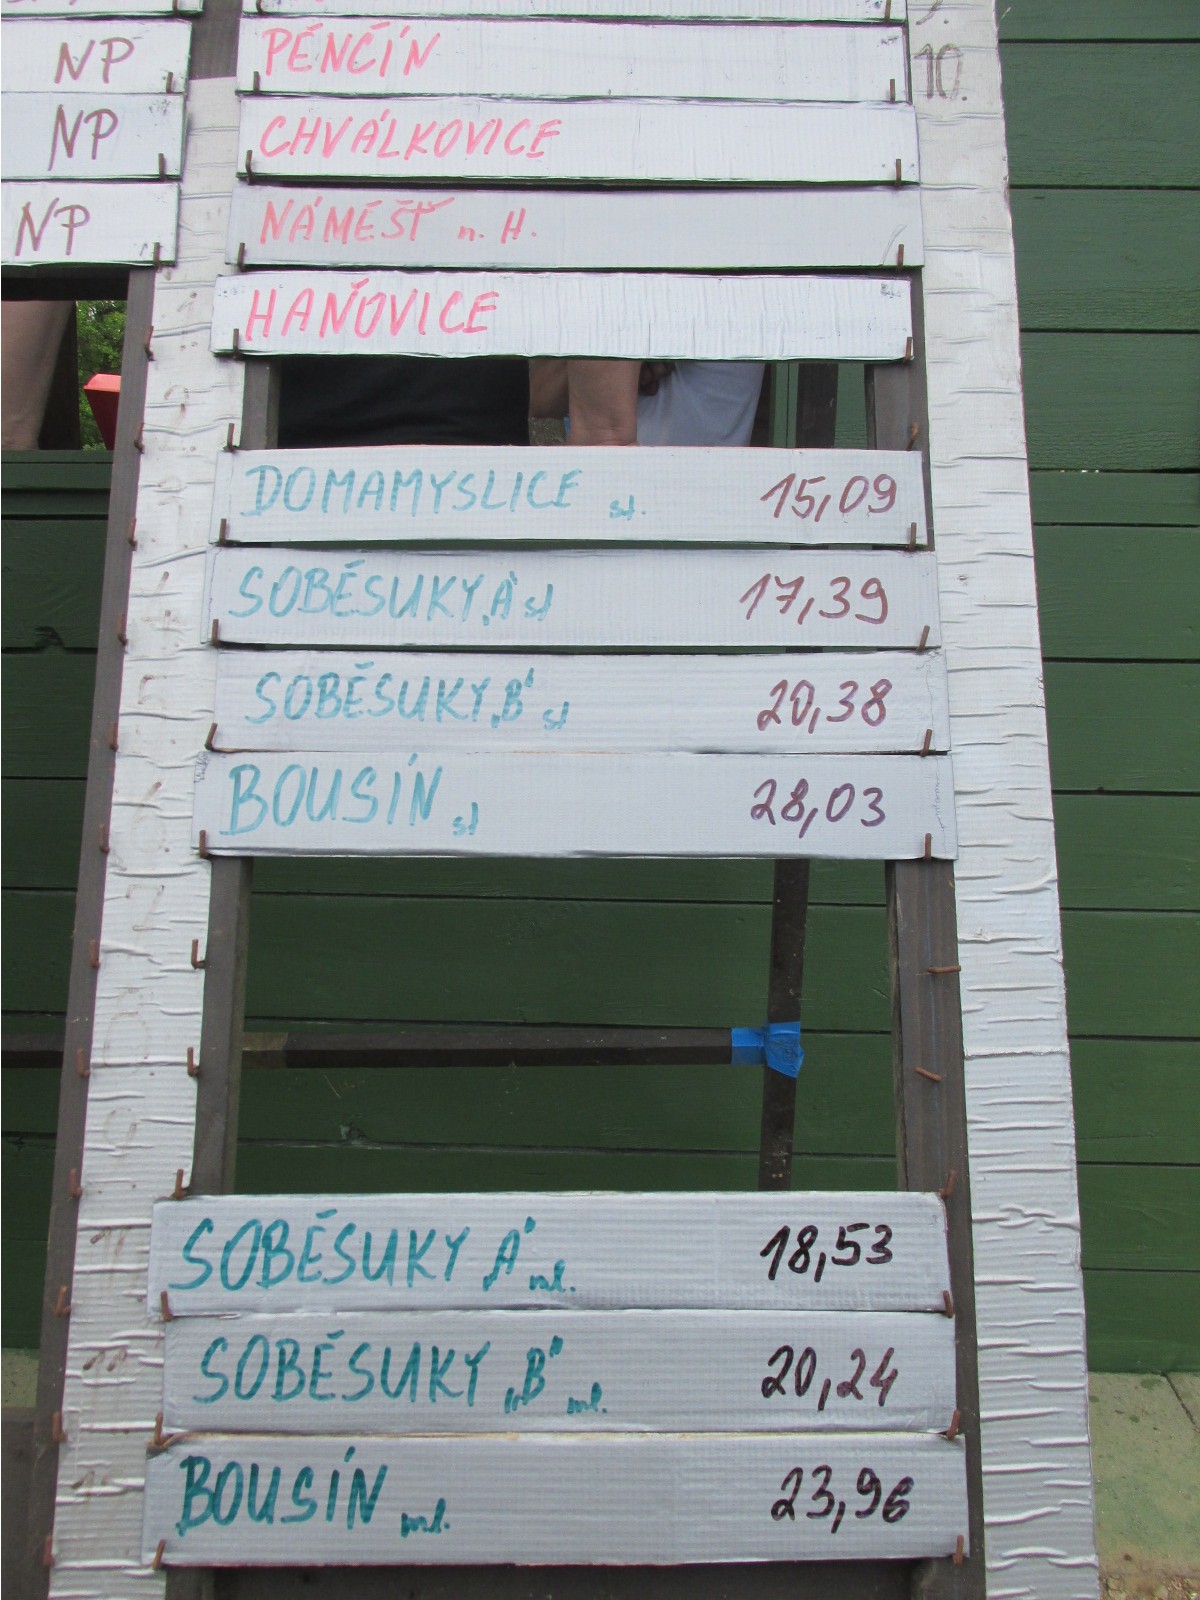 NP PĚNČÍN 10.
NP CHVÁLKOVICE
NP NÁMĚŠŤ n. H.
HAŇOVICE
DOMAMYSLICE st. 15,09
SOBĚSUKY „A“ st 17,39
SOBĚSUKY „B“ st 20,38
BOUSÍN st 28,03
SOBĚSUKY „A“ ml. 18,53
SOBĚSUKY „B“ ml. 20,24
BOUSÍN ml. 23,96